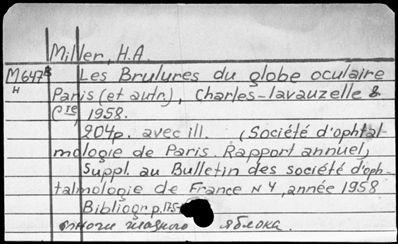 Miller, H.A.
M647B Les Brulures du globe oculaire
H Paris (et autr.), Charles-lavauzelle &
Cie, 1958.
204p. avec ill. (Société d'ophtal-
mologie de Paris. Rapport annuel)
Suppl. au Bulletin des société d'oph-
talmologie de France N 4, année 1958
Bibliogr. p.175-
яблока.